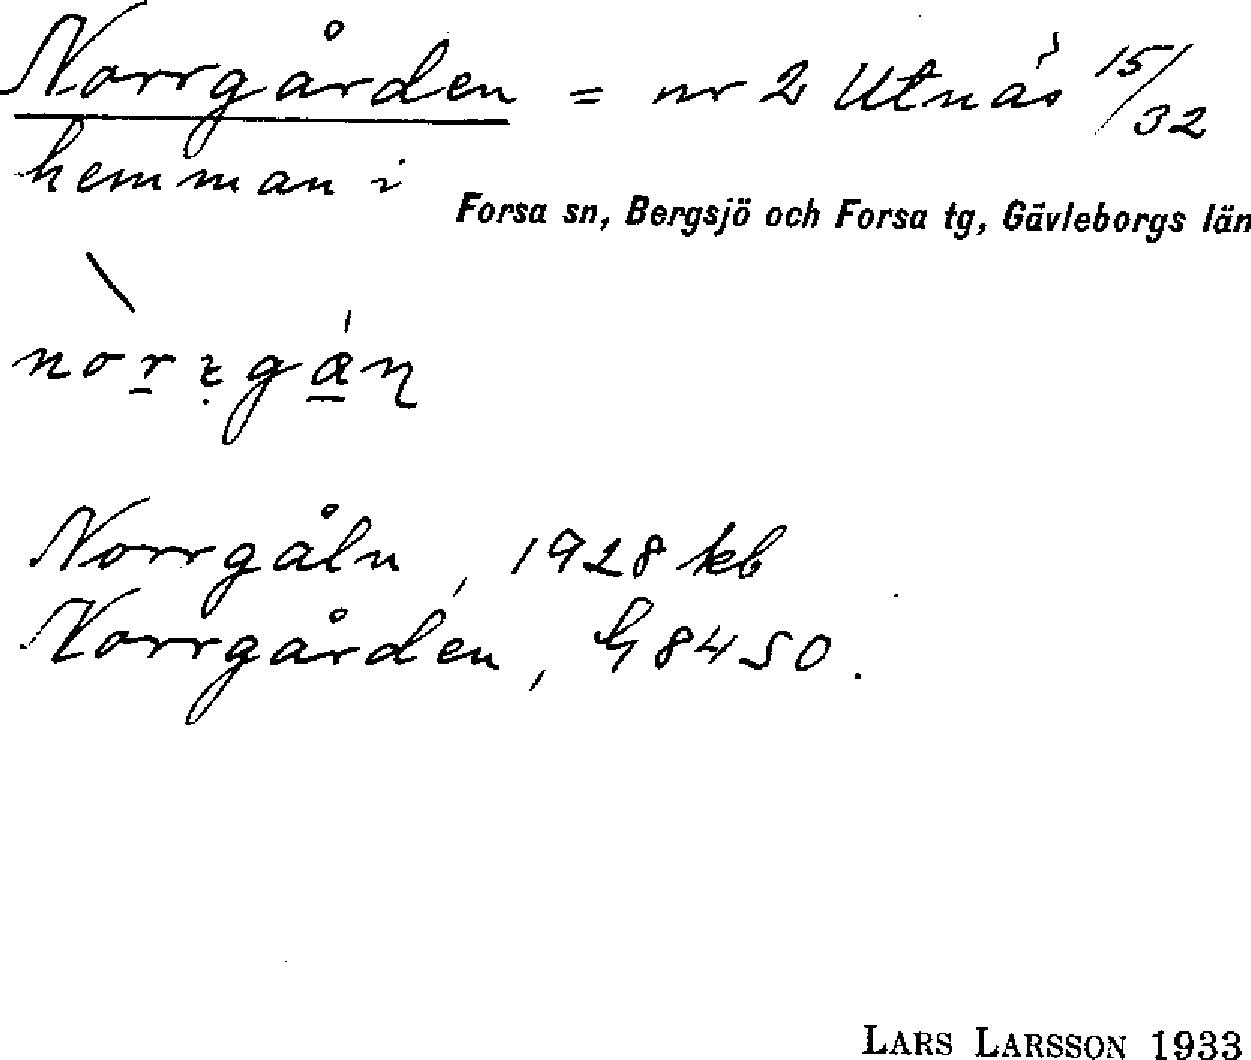 Norrgården = nr 2 Utnäs 15/32
hemman i
Forsa sn, Bergsjö och Forsa tg, Gävleborgs län
Norrgåln, 1928 kb
Norrgården, G 8450.
LARS LARSSON 1933